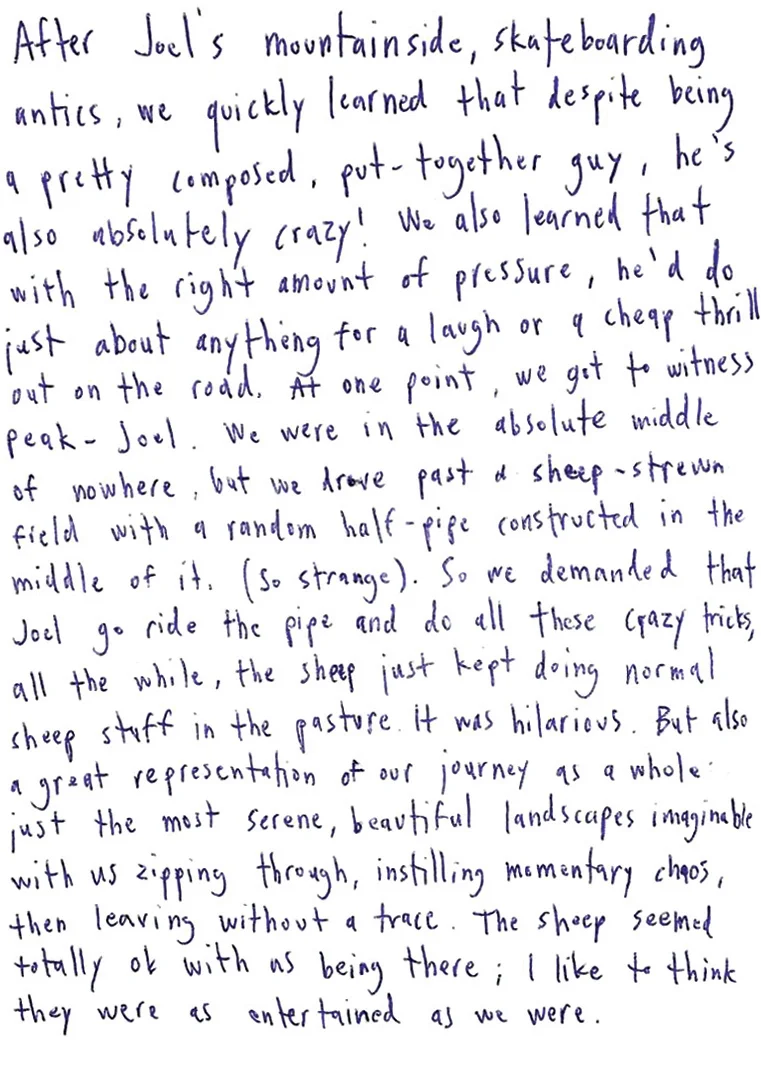 After Joel's mountainside, skateboarding
antics, we quickly learned that despite being
a pretty composed, put-together guy, he's
also absolutely crazy! We also learned that
with the right amount of pressure, he'd do
just about anything for a laugh or a cheap thrill
out on the road. At one point, we got to witness
peak-Joel. We were in the absolute middle
of nowhere, but we drove past a sheep-strewn
field with a random half-pipe constructed in the
middle of it. (So strange). So we demanded that
Joel go ride the pipe and do all these crazy tricks,
all the while, the sheep just kept doing normal
sheep stuff in the pasture. It was hilarious. But also
a great representation of our journey as a whole:
just the most serene, beautiful landscapes imaginable
with us zipping through, instilling momentary chaos,
then leaving without a trace. The sheep seemed
totally ok with us being there; I like to think
they were as entertained as we were.